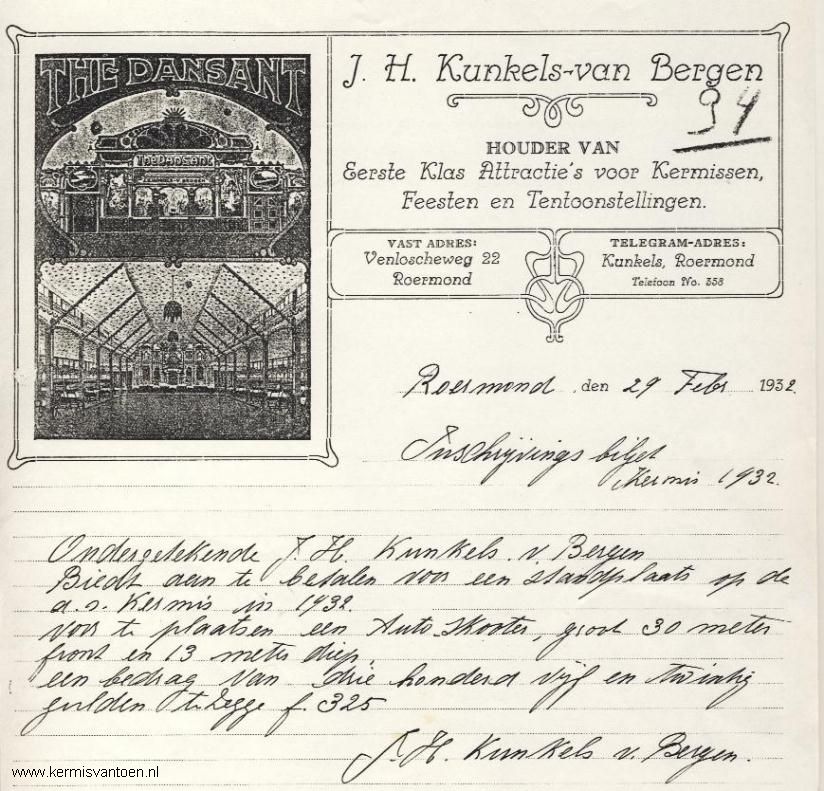 THÉ DANSANT
J. H. Kunkels-van Bergen
34
HOUDER VAN
Eerste Klas Attractie's voor Kermissen,
Feesten en Tentoonstellingen.
VAST ADRES:
Venloscheweg 22
Roermond
TELEGRAM-ADRES:
Kunkels, Roermond
Telefoon No. 358
Roermond den 29 Febr 1932.
Inschrijvings biljet
Kermis 1932.
Ondergetekende J. H. Kunkels v. Bergen
Biedt aan te betalen voor een standplaats op de
a.s. Kermis in 1932.
voor te plaatsen een Auto Skooter, groot 30 meter
front en 13 meter diep,
een bedrag van drie honderd vijf en twintig
gulden te zegge f. 325
J. H. Kunkels v. Bergen.
www.kermisvantoen.nl